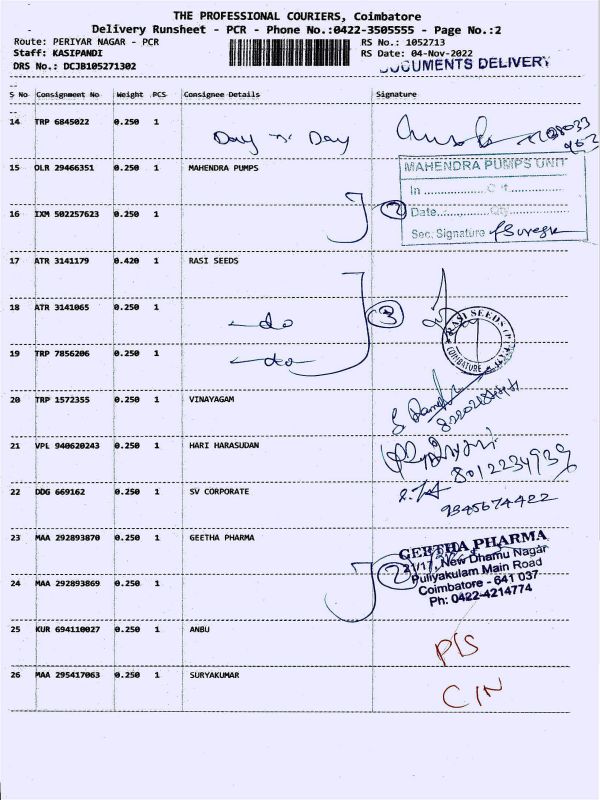 THE PROFESSIONAL COURIERS, Coimbatore
Delivery Runsheet - PCR - Phone No.:0422-3505555 - Page No.:2
Route: PERIYAR NAGAR - PCR RS No.: 1052713
Staff: KASIPANDI RS Date: 04-Nov-2022
DRS No.: DCJB105271302 DOCUMENTS DELIVERY
S No Consignment No Weight PCS Consignee Details Signature
14 TRP 6845022 0.250 1 Day n Day
15 OLR 29466351 0.250 1 MAHENDRA PUMPS MAHENDRA PUMPS UNIT
In
16 IXM 502257623 0.250 1 2 Date Qty
Sec. Signature
17 ATR 3141179 0.420 1 RASI SEEDS
18 ATR 3141065 0.250 1 do 3 RASI SEEDS
COIMBATORE
19 TRP 7856206 0.250 1 do
20 TRP 1572355 0.250 1 VINAYAGAM
21 VPL 940620243 0.250 1 HARI HARASUDAN
8012234939
22 DDG 669162 0.250 1 SV CORPORATE 9345674422
23 MAA 292893870 0.250 1 GEETHA PHARMA GEETHA PHARMA
21/17, New Dhamu Nagar
24 MAA 292893869 0.250 1 2 Puliyakulam Main Road
Coimbatore - 641 037
Ph: 0422-4214774
25 KUR 694110027 0.250 1 ANBU P/S
26 MAA 295417063 0.250 1 SURYAKUMAR C/N